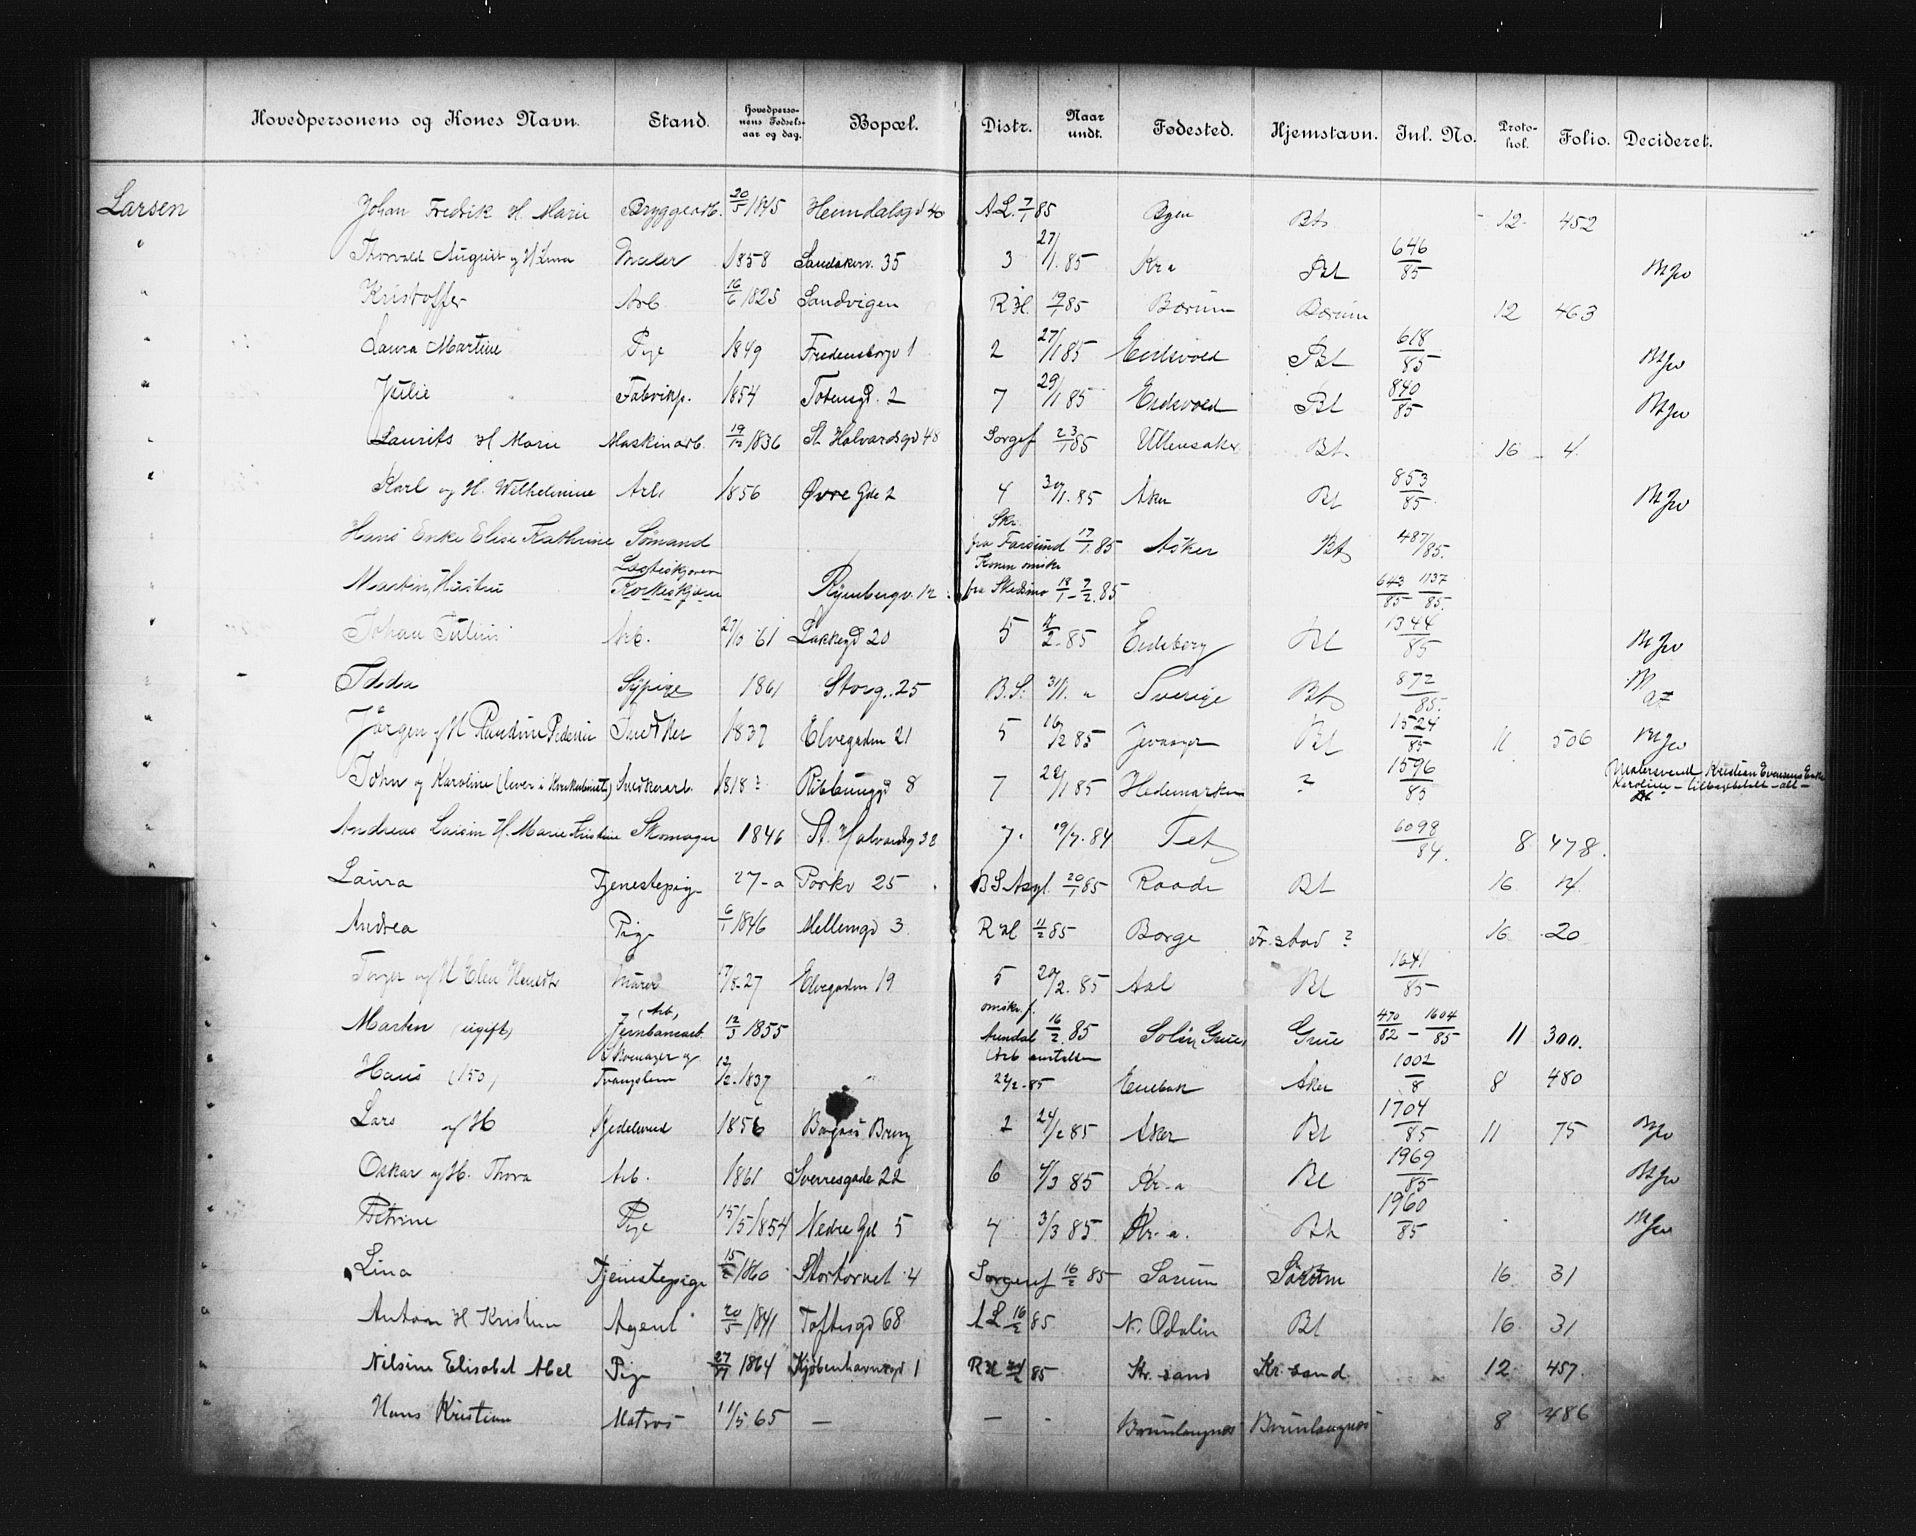 Hovedpersonens og Kones Navn. Stand. Hovedpersonens Fødselsaar og dag. Bopæl. Distr. Naar undt. Fødested. Hjemstavn. Inl. No. Protokol. Folio. Decideret.
Larsen Johan Fredrik H. Marie Bryggearb. 20/5 1845 Heimdalsgd 40 A L. 7/1 85 Byen Bt 12 452
" Thorvald August og H. Lina Maler 1858 Sandakerv. 35 3 27/1. 85 Kr a Bt 646/85
" Kristoffer Arb. 16/6 1825 Sandvigen R H. 19/1 85 Bærum Bærum 12 463
" Laura Martine Pige 1849 Fredensborgv 1 2 27/1 85 Eidsvold Bt 618/85
" Julie Fabrikp. 1854 Totensgd. 2 7 29/1 85 Eidsvold Bt 840/85
" Laurits H Marie Maskinarb. 19/12 1836 St. Halvardsgd 48 Sorgef 23/1 85 Ullensaker Bt 16 4
" Karl og H. Wilhelmine Arb 1856 Øvre Gde 2 4 30/1. 85 Aker Bt 853/85
" Hans Enke Elise Kathrine Sømand Skr. fra Farsund 17/1. 85 Asker Bt 487/85.
" Hustru Rynbergv. 12 Konen fra Skedsmo 18/1 - 7/2. 85 643/85 1137/85.
" Johan Julius Arb. 61 Lakkegd 20 5 85 Eidsberg Bt 1344/85
Sypige 1861 Storg. 25 B. S. 3/1. " Sverige Bt 872/85.
" Jørgen og H Pedersen Snedker 1837 Elvegaden 21 5 16/2 85 Bt 1524/85 11 506
" John og Karoline (lever i Konkubinat) Snedkerarb. 1818? Ribbunggd 8 7 85 Hedemarken ? 1596/85 Malersvend Kristian Evensens Enke Karoline - tilbagebetalt - alt -
" Andreas Larsen H. Marie Kristine Skomager 1846 St. Halvardsg 32 7. 19/7. 84 6098/84. 8 478.
" Laura Tjenestepige 27 - a Parkv 25 B S Asyl. 20/1 85 Raade Bt 16 4
" Andrea Pige 6/1 1846 Mellemgd 3 R H 11/2 85 Borge Fr.stad ? 16 20
" og H Elen Murer 17/8. 27 Elvegaden 19 5 20/2. 85 Aal Bt 1641/85
" Marten (ugift) (Arb) Jernbanearb. 12/3 1855 omskr. f. Arendal 16/2. 85 Solør, Grue Grue 470/82 - 1604/85 11 300.
" Hans (150) Skomager og Tvangslem 12/2. 1837 " Arb anstalten 22/2. 85 Enebak Aker 1002/8 8 480
" Lars og H 1856 2 24/2 85 Aker Bt 1704/85 11 75
" Oskar og H. Thora Arb. 1861 Sverresgade 22 6 4/3 85 Kr - a Bt 1969/85
" Petrine Pige 15/5 1854 Nedre Gd. 5 4 3/3 85 Kr. a. Bt 1960/85
" Lina Tjenestepige 15/2 1860 Stortorvet 4 Sorgenf 16/2 85 Sørum Sørum 16 31
" Anton H Kristine Agent 20/5 1841 Toftesgd 68 A L 16/2 85 N. Odalen Bt 16 31
" Nilsine Elisabet Abel Pige 1864 Kjøbenhavnsgd 1 R H 85 Kr. sand Kr. sand 12 457.
" Hans Kristian Matros 11/5. 65 - - - Brunlangnæs Brunlangnæs 8 486